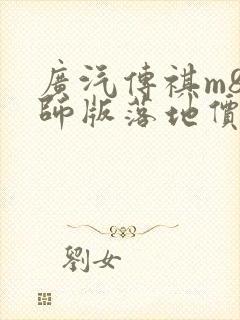 廣汽傳祺m8
師版落地價
劉女